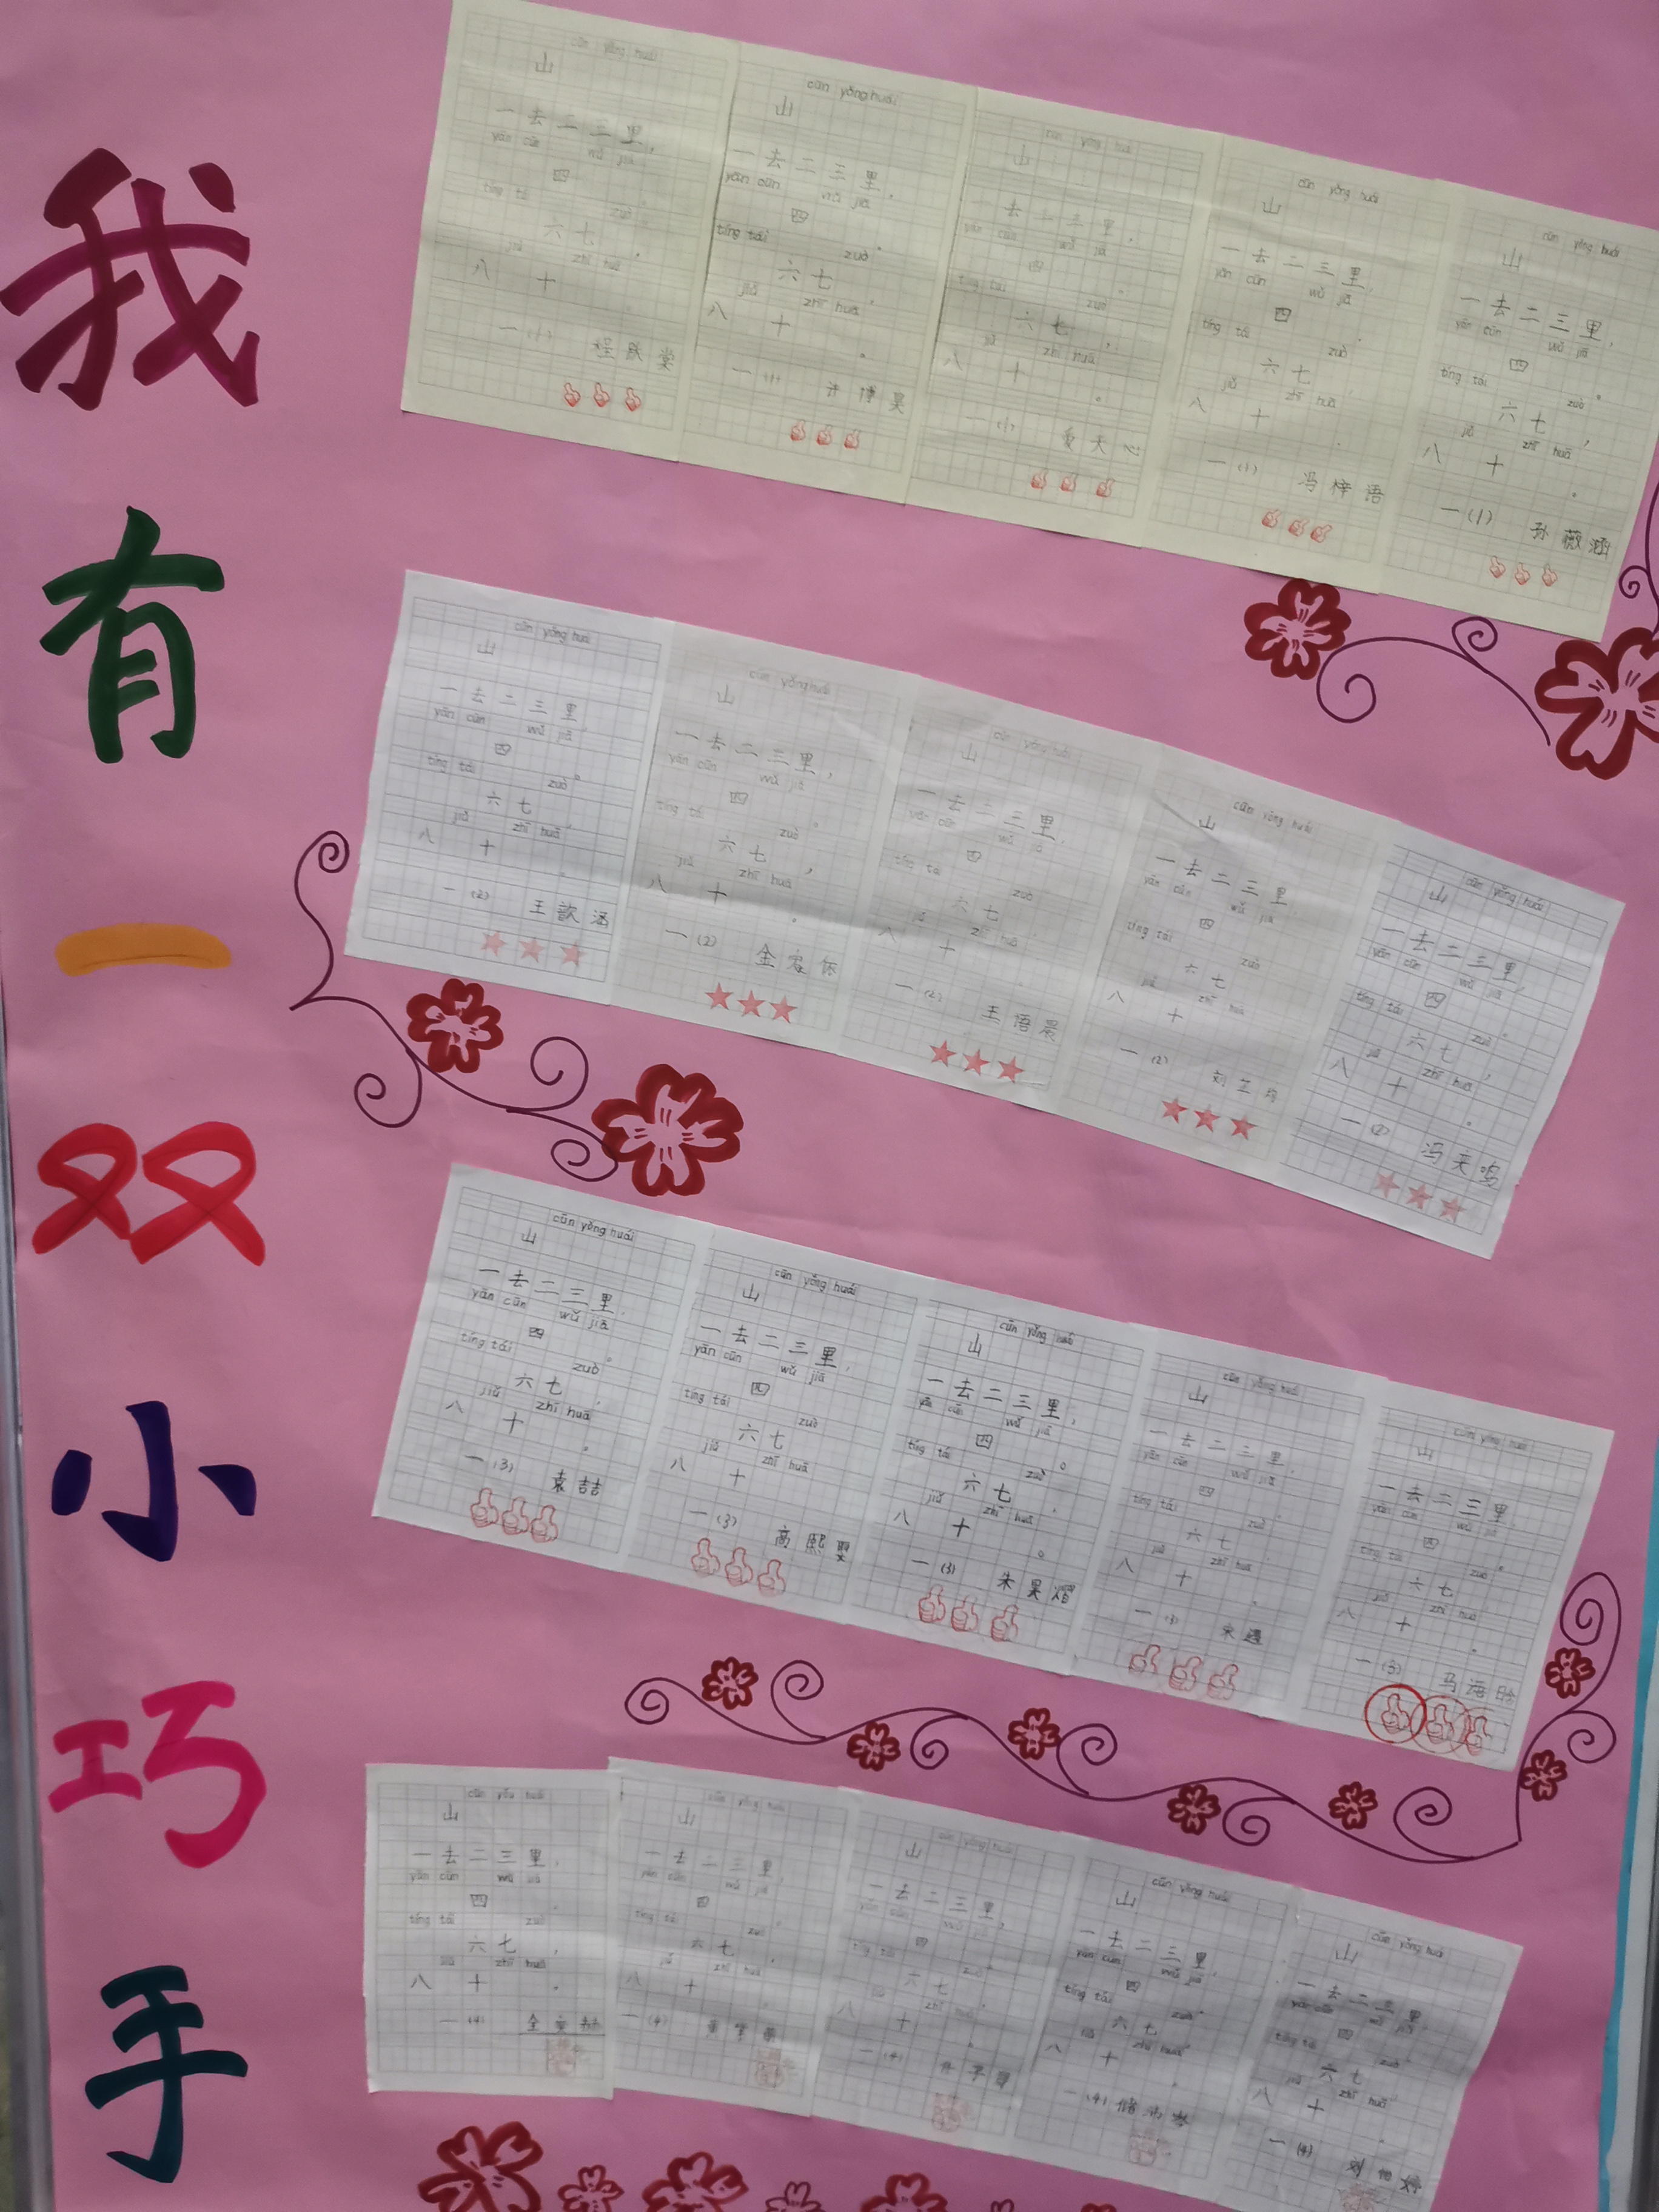 我有一双小巧手
cūn yǒng huái
山
一去二三里,
yān cūn wǔ jiā
四
tíng tái zuò 。
六七,
jiǔ zhī huā
八 十 。
一(1)
cūn yǒng huái
山
一去二三里,
yān cūn wǔ jiā
四 。
tíng tái zuò
六七,
jiǔ zhī huā
八 十 。
一(1) 许博昊
cūn yǒng huái
山
一去二三里,
yān cūn wǔ jiā
四 。
tíng tái zuò
六七,
jiǔ zhī huā
八 十 。
一(1)
cūn yǒng huái
山
一去二三里,
yān cūn wǔ jiā
四 。
tíng tái zuò
六七,
jiǔ zhī huā
八 十 。
一(1) 冯梓语
cūn yǒng huái
山
一去二三里,
yān cūn wǔ jiā
四 。
tíng tái zuò
六七,
jiǔ zhī huā
八 十 。
一(1) 孙薇涵
cūn yǒng huái
山
一去二三里,
yān cūn wǔ jiā
四 。
tíng tái zuò
六七,
jiǔ zhī huā
八 十 。
一(2) 王歆涵
cūn yǒng huái
山
一去二三里,
yān cūn wǔ jiā
四 。
tíng tái zuò
六七,
jiǔ zhī huā
八 十 。
一(2)
cūn yǒng huái
山
一去二三里,
yān cūn wǔ jiā
四
tíng tái zuò
六七
jiǔ zhī huā
八 十
一(2) 王语晨
cūn yǒng huái
山
一去二三里
yān cūn wǔ jiā
四
tíng tái zuò
六七
jiǔ zhī huā
八 十
一(2)
cūn yǒng huái
山
一去二三里,
yān cūn wǔ jiā
四 。
tíng tái zuò
六七,
jiǔ zhī huā
八 十 。
一(2) 冯天鸣
cūn yǒng huái
山
一去二三里,
yān cūn wǔ jiā
四 。
tíng tái zuò
六七,
jiǔ zhī huā
八 十 。
一(3) 袁喆
cūn yǒng huái
山
一去二三里,
yān cūn wǔ jiā
四
tíng tái zuò
六七
jiǔ zhī huā
八 十
一(3) 高熙
cūn yǒng huái
山
一去二三里,
yān cūn wǔ jiā
四 。
tíng tái zuò
六七,
jiǔ zhī huā
八 十 。
一(3) 朱昊熠
cūn yǒng huái
山
一去二三里,
yān cūn wǔ jiā
四
tíng tái zuò
六七
jiǔ zhī huā
八 十 。
一(3)
cūn yǒng huái
山
一去二三里,
yān cūn wǔ jiā
四 。
tíng tái zuò
六七
jiǔ zhī huā
八 十 。
一(3) 马海晗
山
一去二三里,
yān cūn wǔ jiā
四
tíng tái zuò
六七,
jiǔ zhī huā
八 十 。
一(4)
山
一去二三里,
yān cūn wǔ jiā
四
tíng tái zuò
六七
jiǔ zhī huā
八 十
一(4)
山
一去二三里,
四
tíng tái zuò
六七
zhī huā
八 十 。
一(4)
cūn yǒng huái
山
一去二三里,
yān cūn wǔ jiā
四
tíng tái zuò
六七
zhī huā
八 十 。
一(4)
cūn yǒng huái
山
一去二三里,
四
tíng tái zuò
六七
jiǔ zhī huā
八 十 。
一(4)